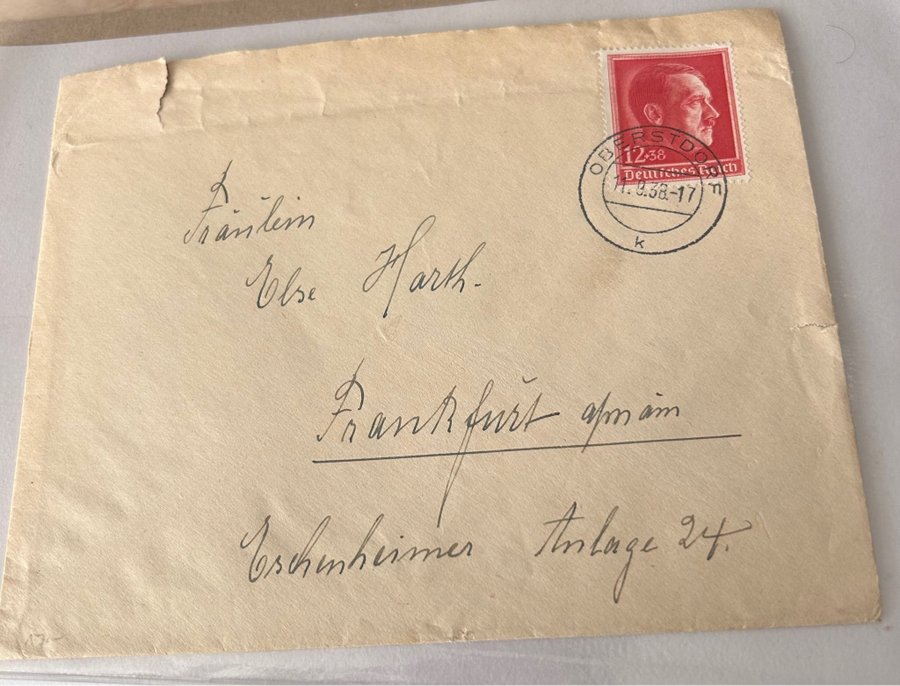 12+38
Deutsches Reich
OBERSTDORF
11.9.38.-17
k
Fräulein
Else Harth.
Frankfurt a/main
Eschenheimer Anlage 24.